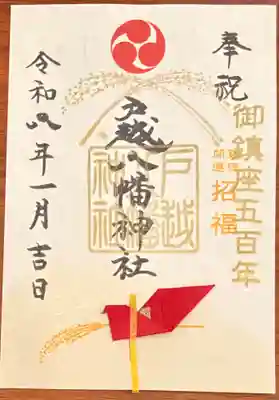 奉祝
御鎮座五百年
開運
招福
戸越八幡神社
戸越
神社
令和八年一月吉日